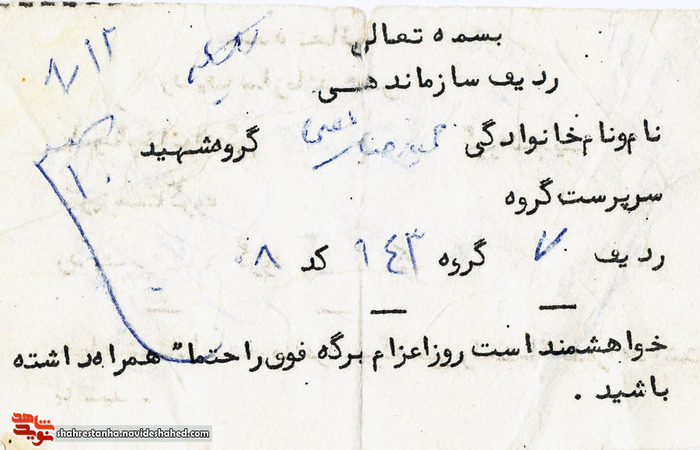 بسمه تعالی
ردیف سازماندهی
۸/۱۲
نام و نام خانوادگی گروه شهید
۱۰
سرپرست گروه
ردیف ۷ گروه ۹۴۳ کد ۰۸
خواهشمند است روز اعزام برگه فوق را حتما" همراه داشته
باشید .
شاهد
نوید
shahrestanha.navideshahed.com